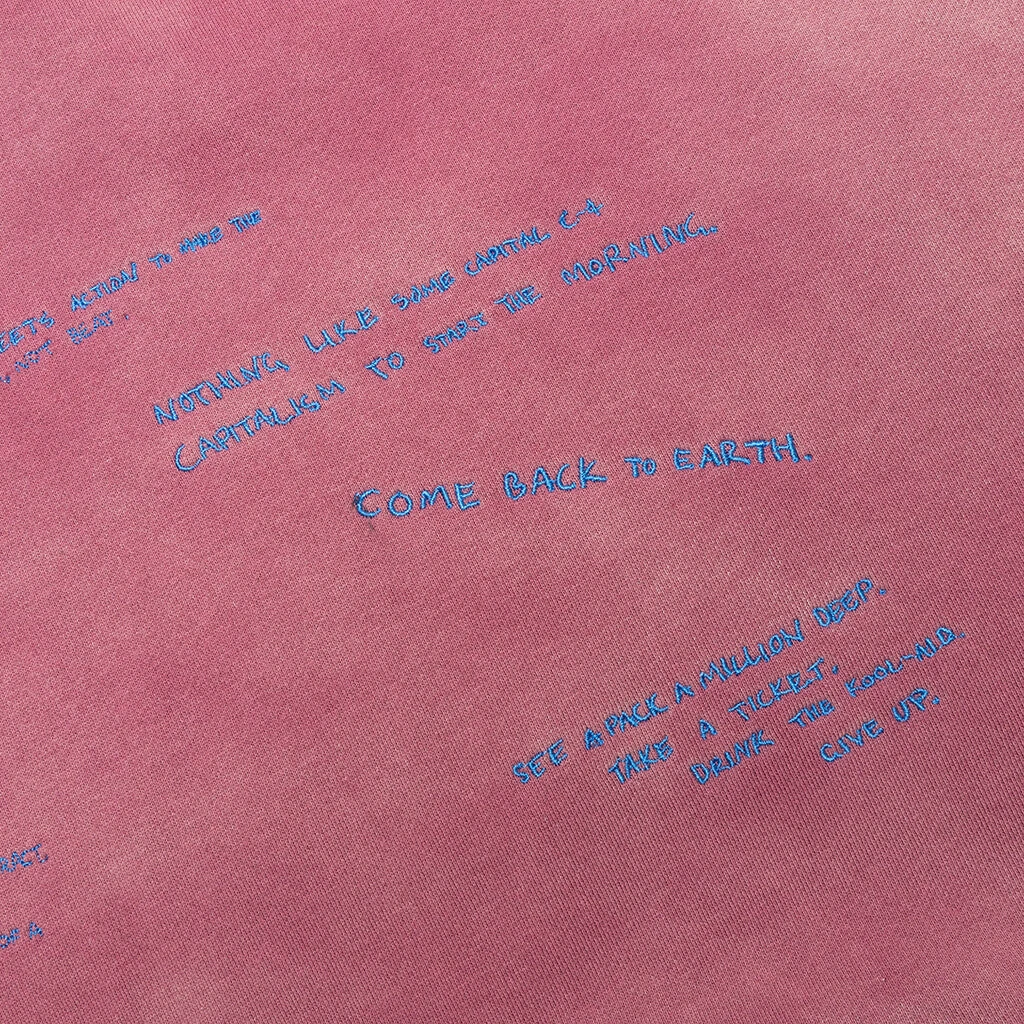 ACTION TO MAKE THE
NOTHING LIKE SOME CAPITAL C-4
CAPITALISM TO START THE MORNING.
COME BACK TO EARTH.
SEE A PACK A MILLION DEEP.
TAKE A TICKET,
DRINK THE KOOL-AID.
GIVE UP.